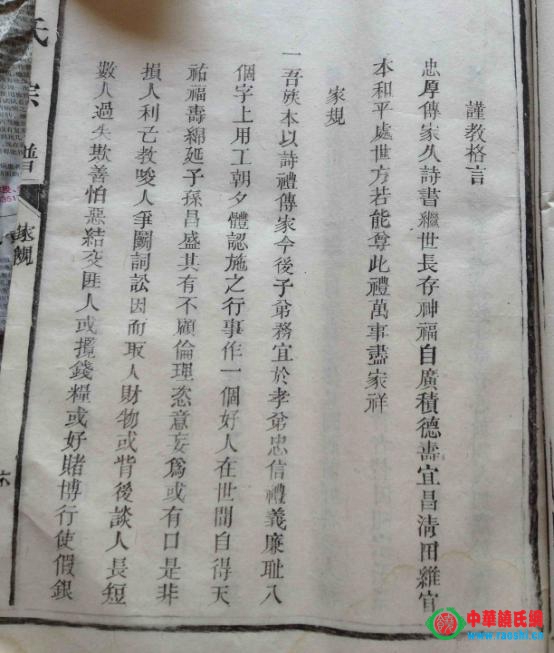 謹教格言
忠厚傳家久詩書繼世長存神福自廣積德壽宜昌淸田雖官
本和平處世方若能尊此禮萬事盡家祥
家規
一吾族本以詩禮傳家今後子弟務宜於孝弟忠信禮義廉耻八
個字上用工朝夕體認施之行事作一個好人在世間自得天
祐福壽綿延子孫昌盛其有不顧倫理恣意妄爲或有口是非
損人利己教唆人爭鬭詞訟因而取人財物或背後談人長短
數人過失欺善怕惡結交匪人或攬錢糧或好賭博行使假銀
氏宗譜
家規
六
中華饒氏網
www.raoshi.cn